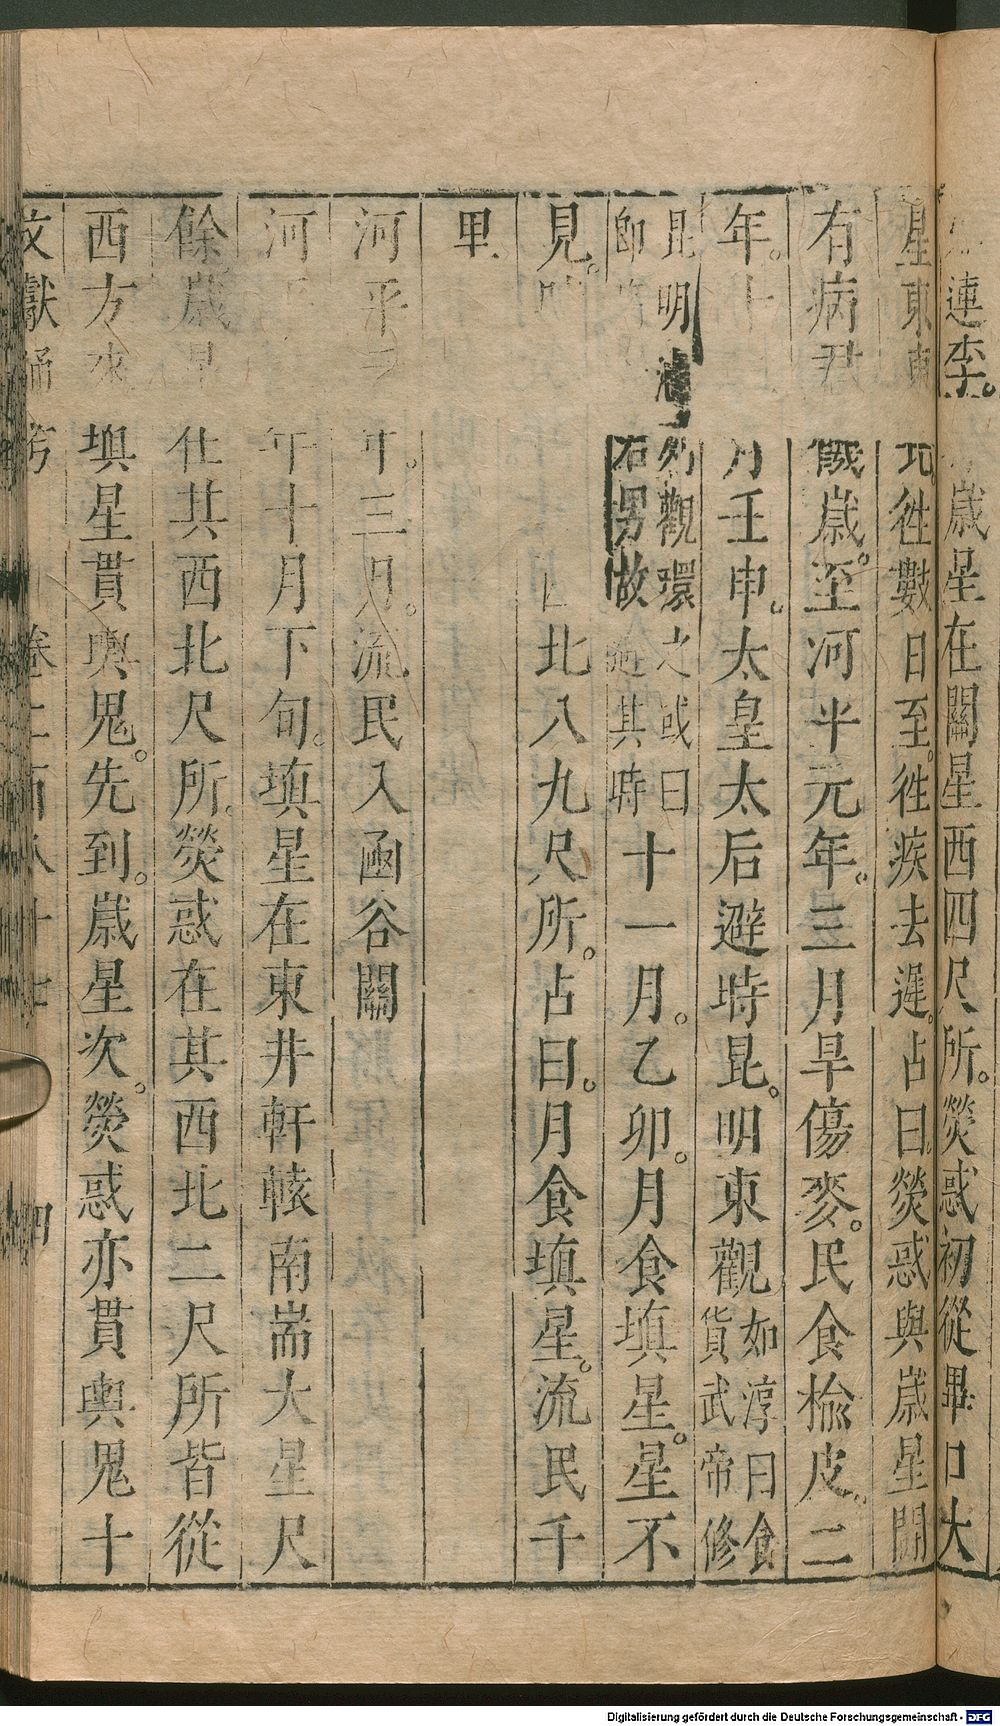 連李。歲星在關星西四尺所。熒惑初從畢口大
星東東北。徃數日至。徃疾去遲。占曰。熒惑與歲星鬬
有病君饑歲。至河平元年。三月旱傷麥。民食榆皮。二
年。十月壬申。太皇太后避時昆。明東觀如淳曰食
貨武帝修
昆明池列觀環之或曰
師古男故避其時十一月。乙卯。月食填星。星不
見。時北八九尺所。占曰。月食填星。流民千
里。
河平年。三月。流民入函谷關
河年十月下句。填星在東井軒轅南耑大星尺
餘歲星在其西北尺所。熒惑在其西北二尺所皆從
西方來填星貫輿鬼。先到。歲星次。熒惑亦貫輿鬼十
文獻通考 卷二百八十七 四
Digitalisierung gefördert durch die Deutsche Forschungsgemeinschaft - DFG